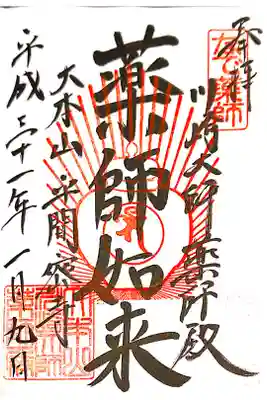 奉拝
川崎大師 薬師殿
薬師如来
大本山 平間寺
平成三十一年一月九日